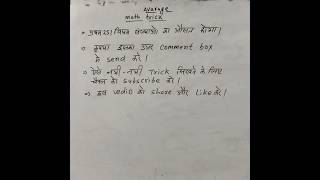 average
math trick
प्रथम 251 विषम संख्याओ का औसत होगा।
कृपया इसका उत्तर comment box
मे send करे।
ऐसे नयी-नयी Trick सिखने के लिए
चैनल को subscribe करे।
इस vedio को share और Like करे।